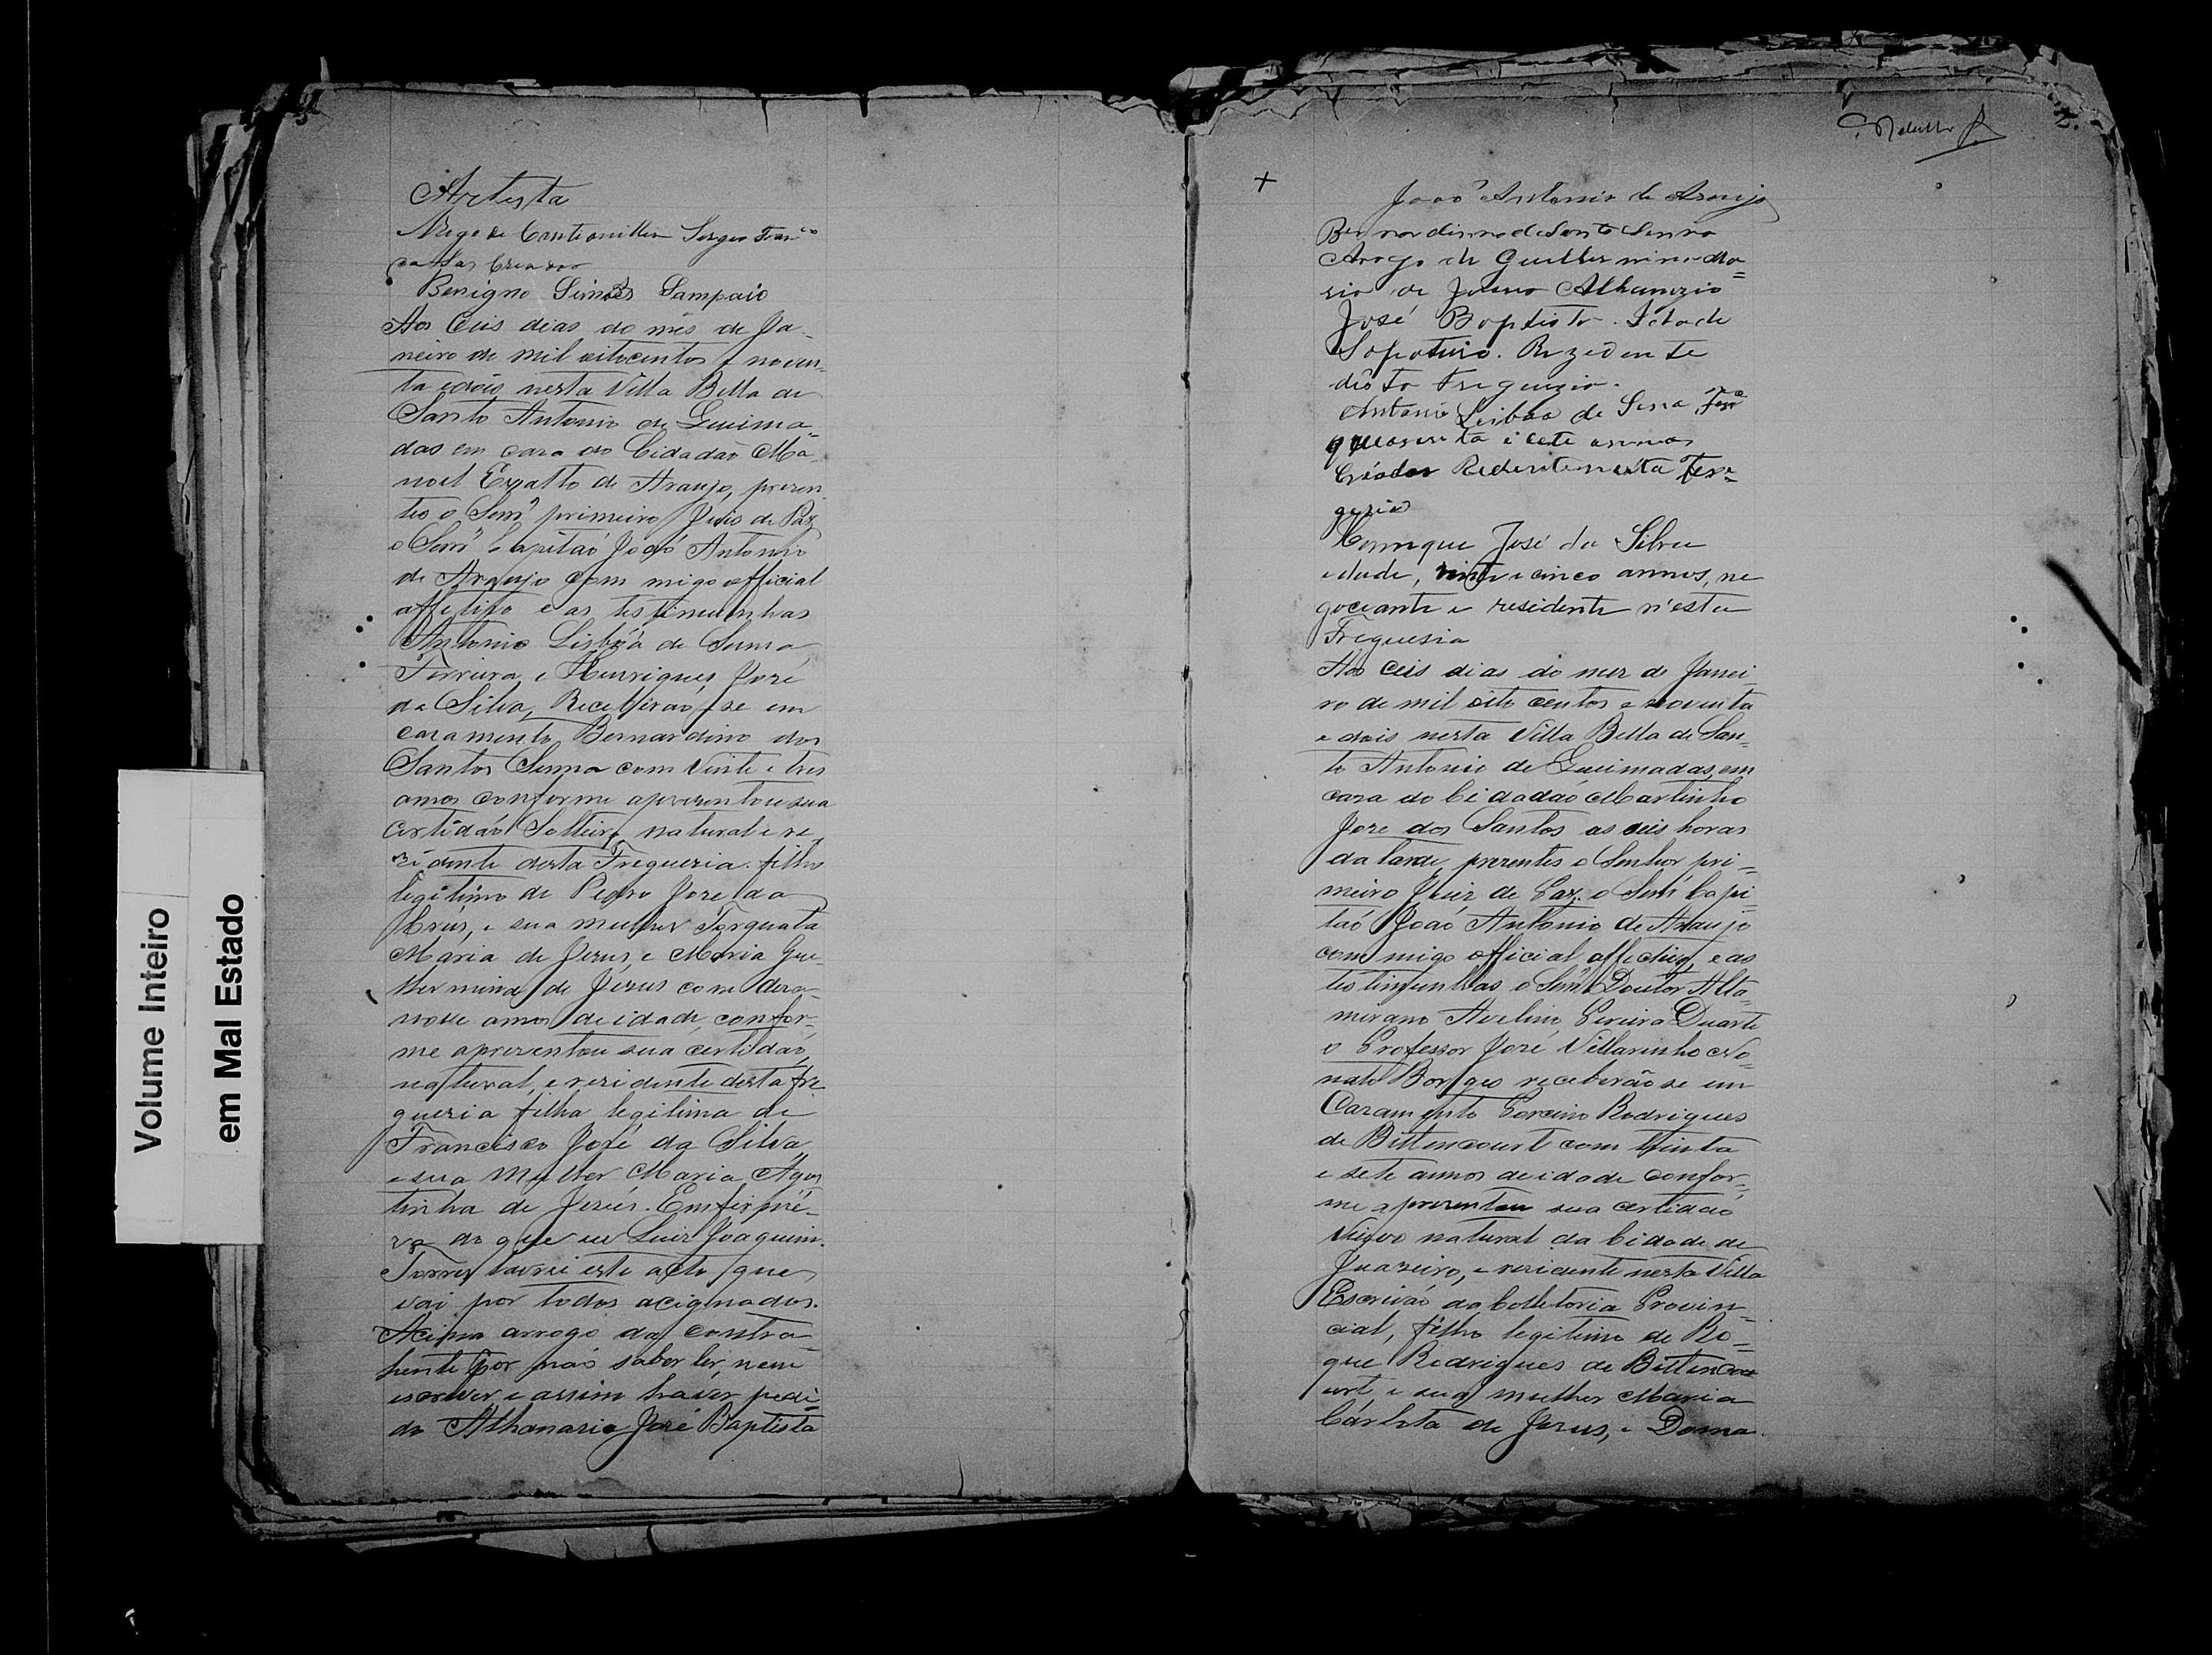 Volume Inteiro
em Mal Estado
Artista
Benigno Simões Sampaio
Aos Ceis dias do mês de Ja-
neiro de mil oitocentos e noven-
ta e dois nesta Villa Bella de
Santo Antonio de Queima-
das em caza do Cidadão Ma-
noel de Araujo, prezen-
tes o Senr primeiro Juis de Paz
o Senr Capitaó João Antonio
de Araujo com migo official
e as testimunhas
Antonio Lisbôa de Senna
Ferreira, e Henriques José
da Silva, Receberaó-se em
cazamento Bernardino dos
Santos Senna com Vinte e tres
annos conforme aprezentou sua
certidaó Solteiro, natural e re-
zidente desta Freguezia. filho
legitimo de Pedro Jose da
Crus, e sua mulher Torquata
Maria de Jezus, e Maria Gui-
lhermina de Jezus com deza-
nove annos de idade, confor-
me aprezentou sua certidaó,
natural, e rezidente desta fre-
guezia filha legitima de
Francisco José da Silva,
e sua Mulher Maria Agos
tinha de Jezus. Em firmé-
za do que eu Luiz Joaquim
Torres lavrei este acto que
vai por todos acignados.
Acigna arrogo da contra-
hente por naó saber ler, nem
escrever e assim haver pedi-
do Athanazio José Baptista
2.
+
Joaó Antonio de Araujo
Bernardinno de Santo Senna
Arogo de Guilhermina Ma=
ria de Jezus Athanazio
José Baptista. Idade
Rezedente
dêsta Freguezia.
Antonio Lisboa de Sena Fer^ra
quarenta i cete annos
Criador Redente nesta Fer=
gezia
Henrique José da Silva
edade, vinte e cinco annos, ne
gociante e residente n'esta
Freguesia
Aos Ceis dias do mez de Janei-
ro de mil oito centos e noventa
e dois nesta Villa Bella de San-
to Antonio de Queimadas, em
caza do Cidadaó Martinho
Joze dos Santos as seis horas
da tarde, prezentes o Senhor pri-
meiro Juiz de Paz. o Senr Capi-
taó Joaó Antonio de Araujo
com migo official affectivo, e as
testimunhas o Senr Doutor Alta-
mirano Avelino Pereira Duarte
o Professor José Villarinho No-
nato Borges receberão se em
Cazamento Porcino Rodrigues
de Bittencourt com trinta
e sete annos de idade confor-
me aprezentou sua certidaó
Viuvo natural da Cidade de
Juazeiro, e rezidente nesta Villa
Escrivaó da Colletoria Provin-
cial, filho legitimo de Ro-
que Rodrigues de Bittencou
urt, e sua mulher Maria
Carlota de Jezus, e Donna